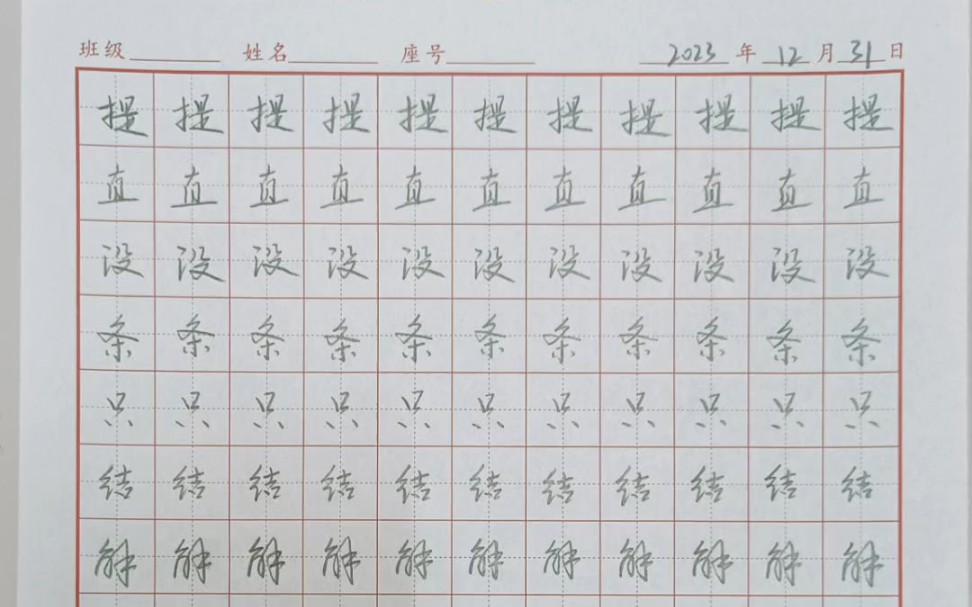 班级 姓名 座号 2023 年 12 月 31 日
提 提 提 提 提 提 提 提 提 提 提
直 直 直 直 直 直 直 直 直 直 直
没 没 没 没 没 没 没 没 没 没 没
条 条 条 条 条 条 条 条 条 条 条
只 只 只 只 只 只 只 只 只 只 只
结 结 结 结 结 结 结 结 结 结 结
解 解 解 解 解 解 解 解 解 解 解